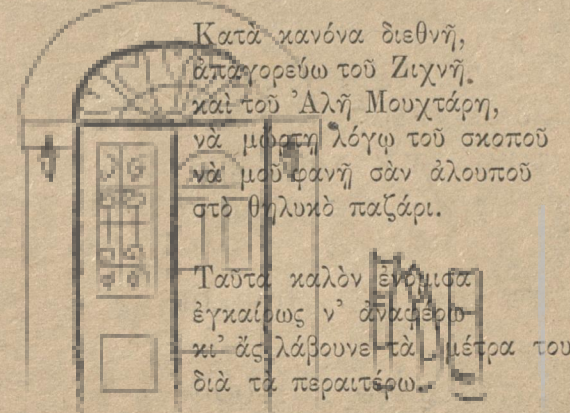 Κατὰ κανόνα διεθνῆ,
ἀπαγορεύω τοῦ Ζιχνῆ
καὶ τοῦ Ἀλῆ Μουχτάρη,
νὰ μὤρτη λόγῳ τοῦ σκοποῦ
νὰ μοῦ φανῆ σὰν ἀλουποῦ
στὸ θηλυκὸ παζάρι.
Ταῦτα καλὸν ἐνόμισα
ἐγκαίρως ν' ἀναφέρω
κι' ἄς λάβουνε τὰ μέτρα του
διὰ τὰ περαιτέρω.